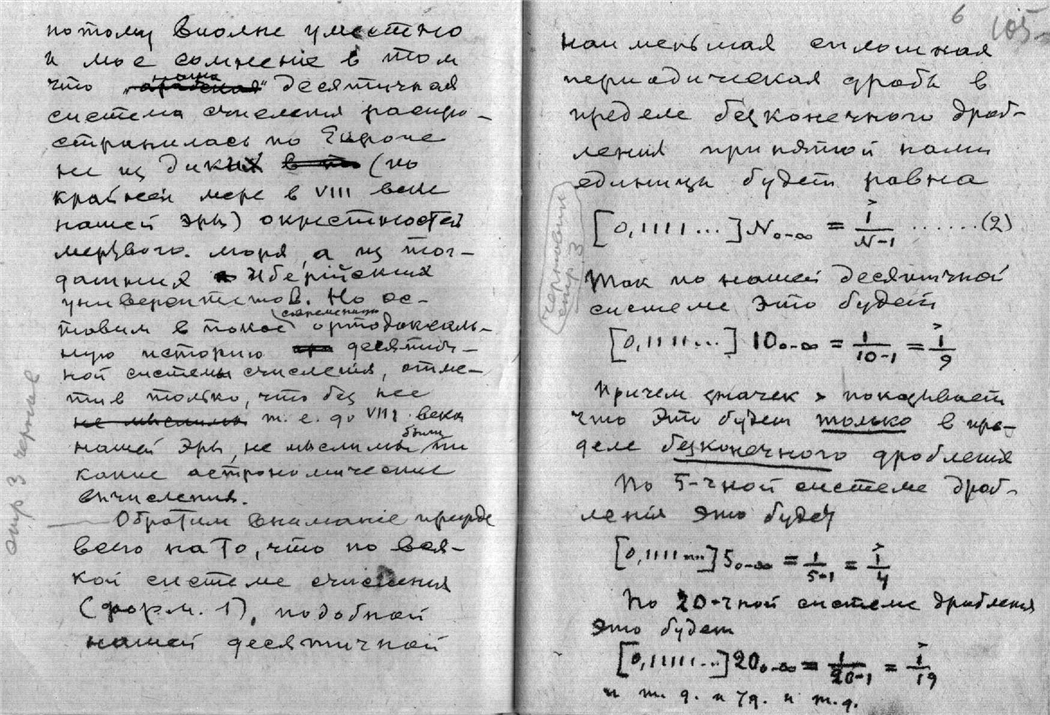 потому вполне уместно
и мое сомнение в том
что наша десятичная
система счисления распро-
странилась по Европе
не из диких (по
крайней мере в VIII веке
нашей эры) окрестностей
мертвого моря, а из тог-
дашних Иберийских
университетов. Но ос-
тавим в покое современную ортодоксаль-
ную историю десятич-
ной системы счисления, отме-
тив только, что без нее
не мыслимы т.е. до VIII века
нашей эры, не мыслимы были ни
какие астрономические
вычисления.
Обратим вниманіе прежде
всего на то, что по вся-
кой системе счисления
(форм. 1), подобной
нашей десятичной
стр 3 черновие
6 105
наименьшая сплошная
периодическая дробь в
пределе безконечного дроб-
ления принятой нами
единицы будет равна
[0,1111...] N₀₋∞ = 1/N-1 ......(2)
Так по нашей десятичной
системе это будет
[0,1111...] 10₀₋∞ = 1/10-1 = 1/9
Причем значек > показывает
что это будет только в пре-
деле безконечного дробления
По 5-чной системе дроб-
ленія это будет
[0,1111...] 5₀₋∞ = 1/5-1 = 1/4
По 20-чной системе дробления
это будет
[0,11111...] 20₀₋∞ = 1/20-1 = 1/19
и т.д. и т.д. и т.д.
стр 3